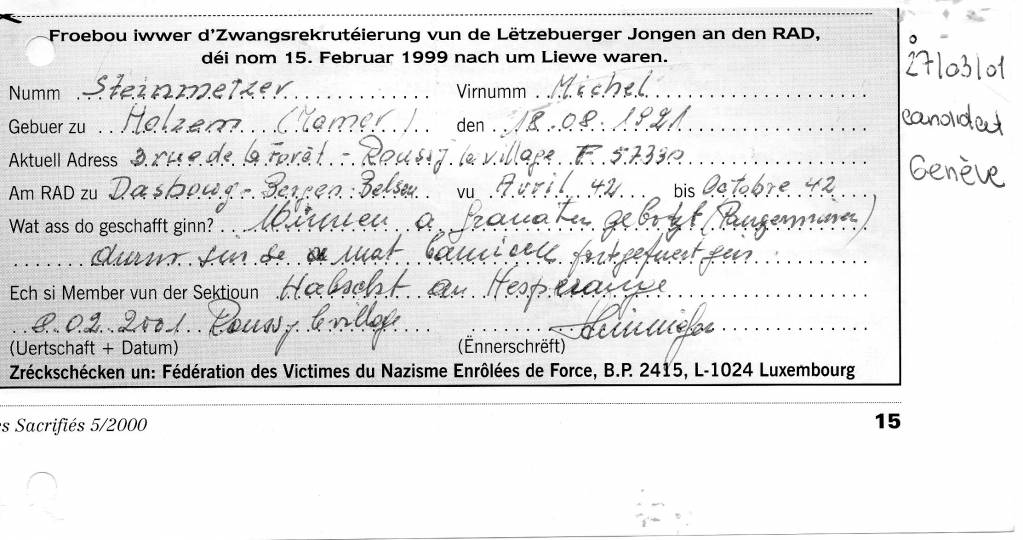 Froebou iwwer d'Zwangsrekrutéierung vun de Lëtzebuerger Jongen an den RAD,
déi nom 15. Februar 1999 nach um Liewe waren.
Numm Steinmetzer Virnumm Michel
Gebuer zu Holzem (Mamer) den 18.08.1921
Aktuell Adress 3 rue de la Forêt - Roussy le village F 57330
Am RAD zu Dasbourg - Bergen-Belsen vu Avril 42 bis Octobre 42
Wat ass do geschafft ginn? Minnen a Granaten gebotzt (Panzerminnen)
sin se mat Camionen fortgefuert gin
Ech si Member vun der Sektioun Habscht an Hesperange
8.02.2001 Roussy le village
(Uertschaft + Datum) (Ënnerschrëft)
Zréckschécken un: Fédération des Victimes du Nazisme Enrôlées de Force, B.P. 2415, L-1024 Luxembourg
es Sacrifiés 5/2000 15
27/03/01
candidat
Genève